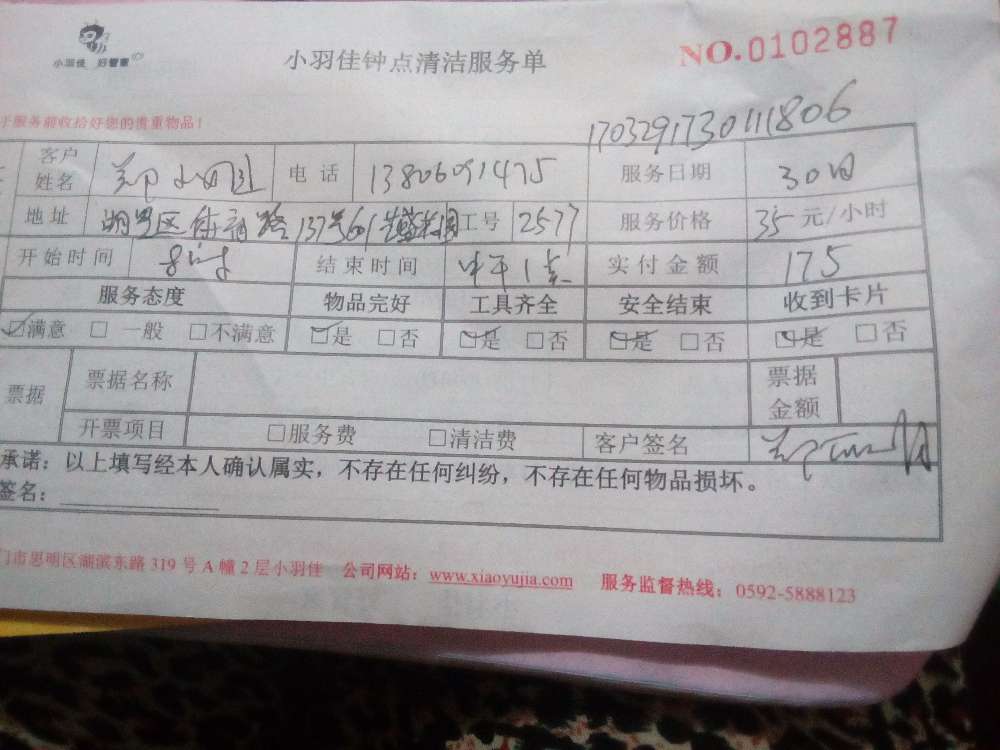 小羽佳 好管家
小羽佳钟点清洁服务单
NO.0102887
于服务前收拾好您的贵重物品！
170329173011806
客户姓名 电话 13806091475 服务日期 30日
地址 湖里区 路137号601 工号 2577 服务价格 35元/小时
开始时间 8时 结束时间 中午1点 实付金额 175
服务态度 物品完好 工具齐全 安全结束 收到卡片
☑满意 □一般 □不满意 ☑是 □否 ☑是 □否 ☑是 □否 ☑是 □否
票据 票据名称 票据金额
开票项目 □服务费 □清洁费 客户签名
承诺：以上填写经本人确认属实，不存在任何纠纷，不存在任何物品损坏。
签名：
门市思明区湖滨东路319号A幢2层小羽佳 公司网站：www.xiaoyujia.com 服务监督热线：0592-5888123